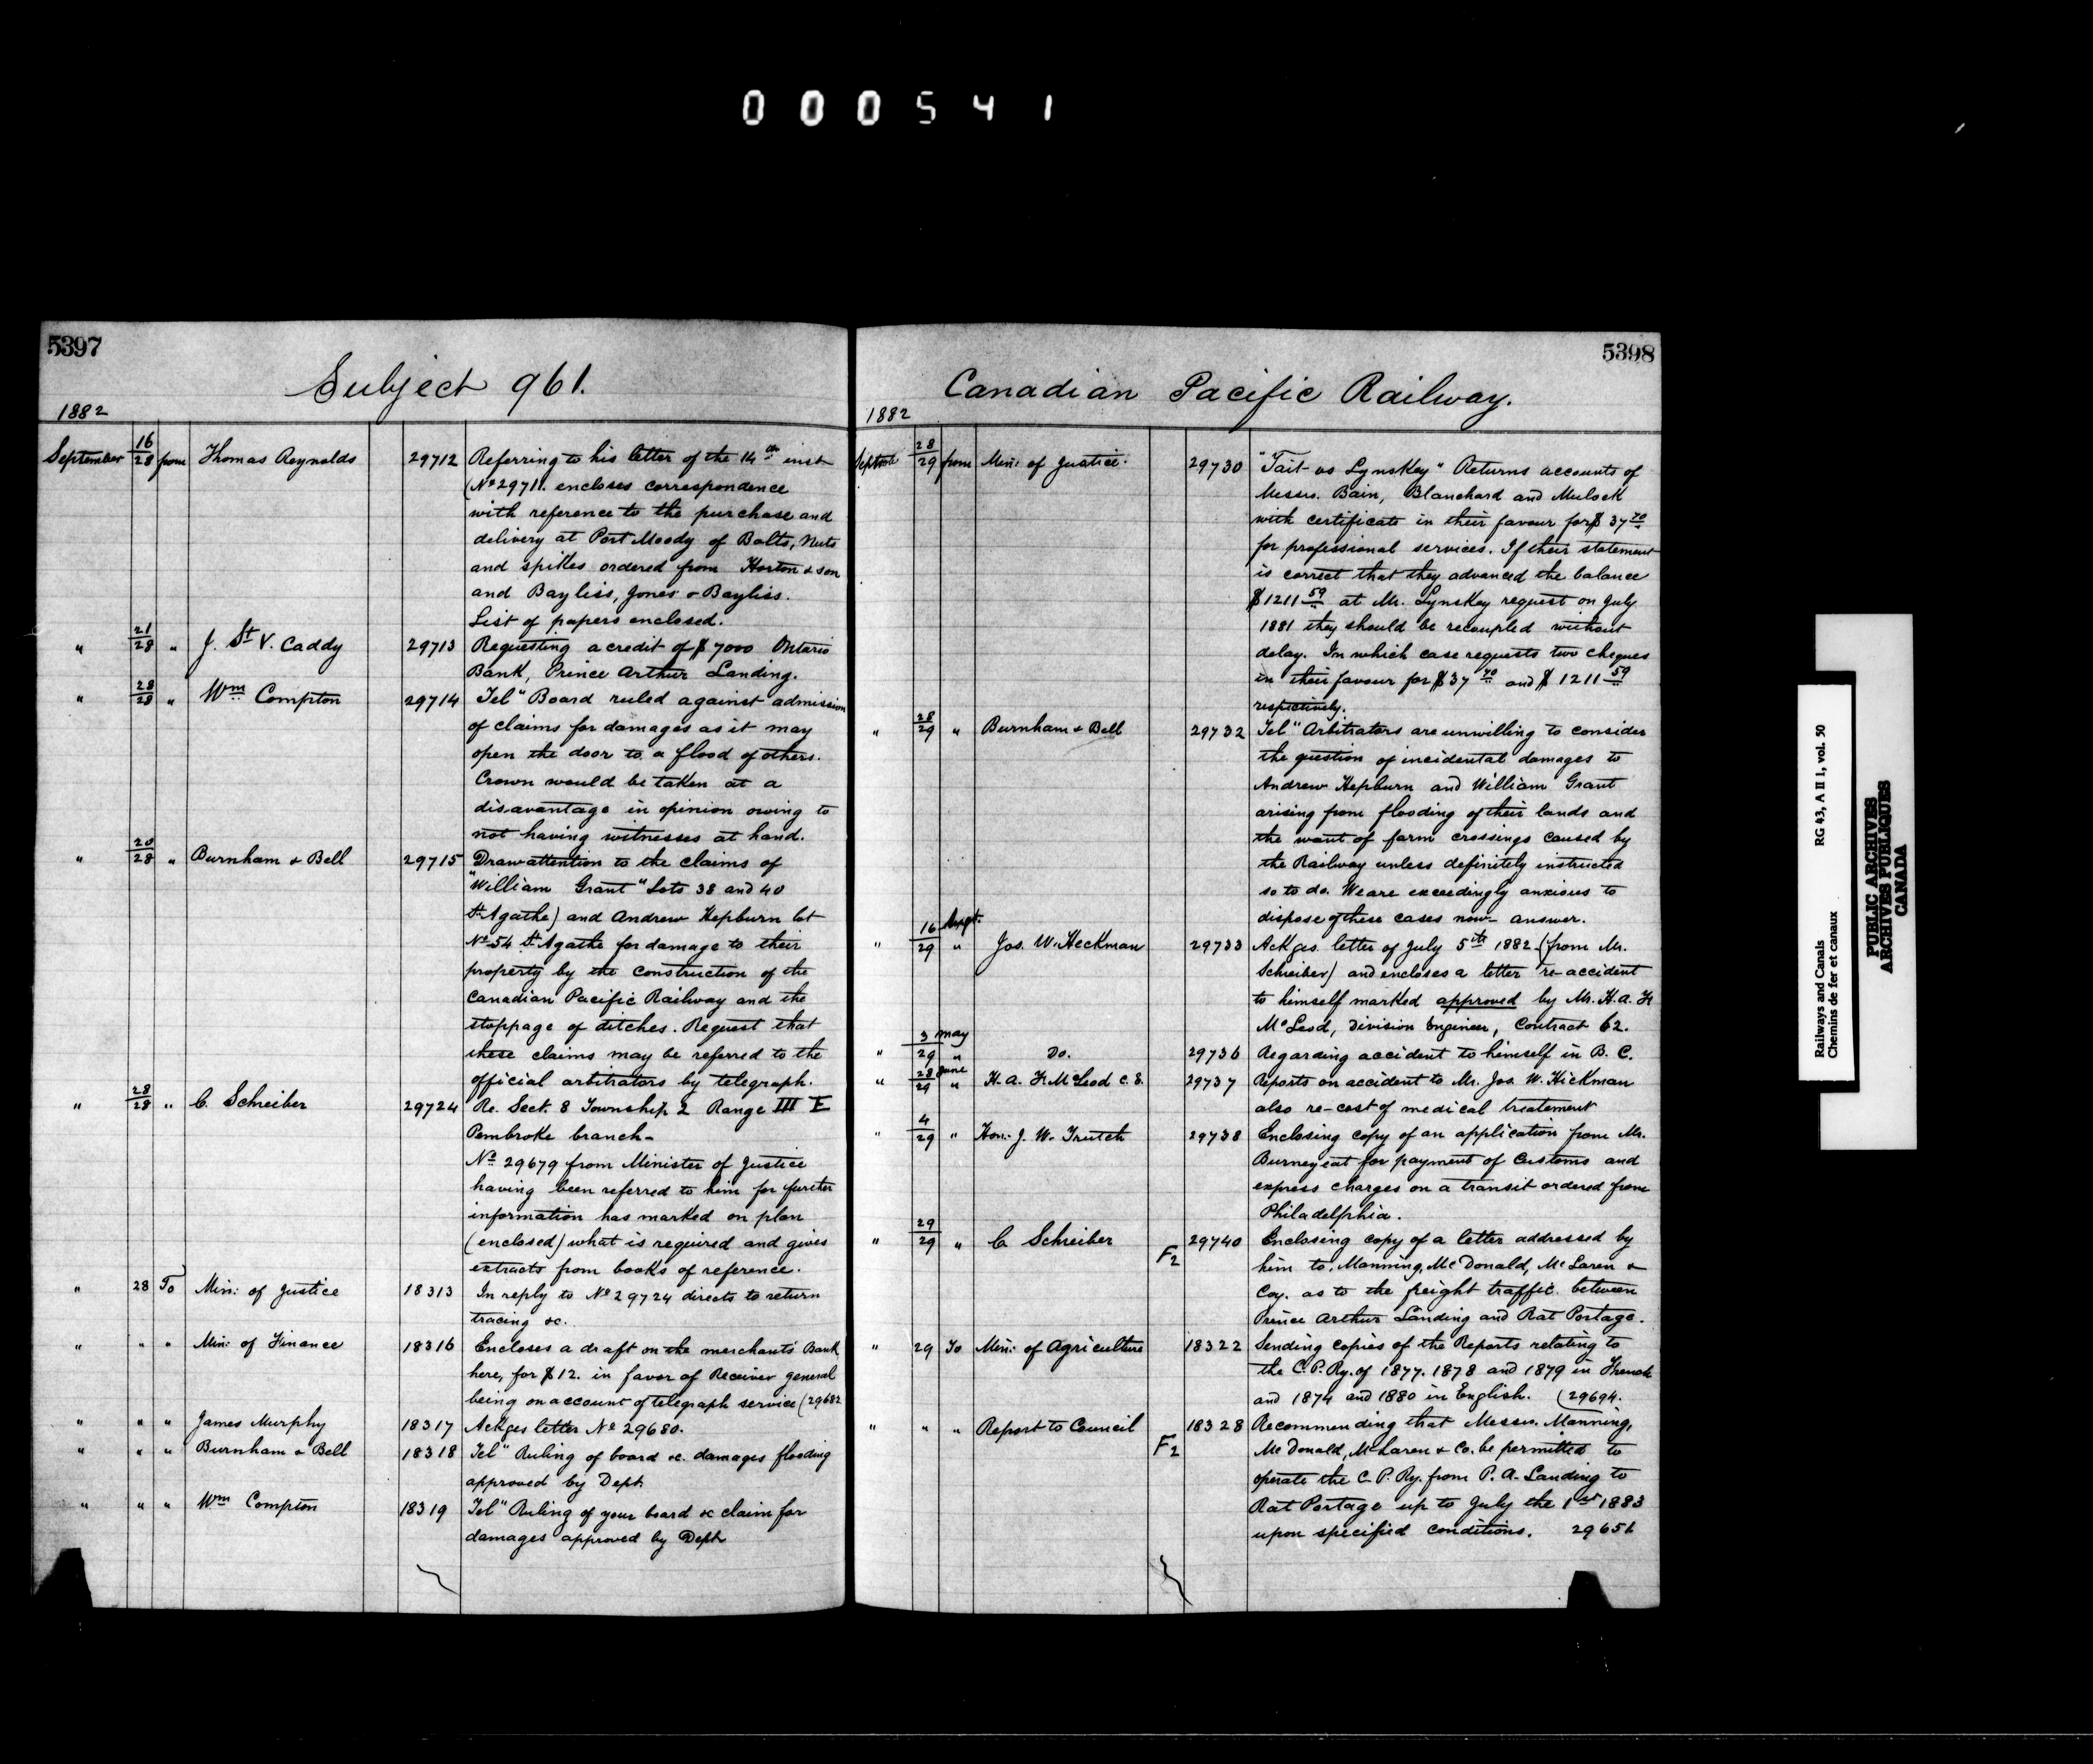 000541
5397
Subject 961.
1882
September 16/28 from Thomas Reynolds 29712 Referring to his letter of the 14th inst
(No 29711. encloses correspondence
with reference to the purchase and
delivery at Port Moody of Bolts, Nuts
and spikes ordered from Horton & son
and Bayliss, Jones & Bayliss.
List of papers enclosed.
" 21/28 " J. St V. Caddy 29713 Requesting a credit of $7000 Ontario
Bank, Prince Arthur Landing.
" 28/28 " Wm Compton 29714 Tel" Board ruled against admission
of claims for damages as it may
open the door to a flood of others.
Crown would be taken at a
disavantage in opinion owing to
not having witnesses at hand.
" 20/28 " Burnham & Bell 29715 Draw attention to the claims of
"William Grant" Lots 38 and 40
St Agathe) and Andrew Hepburn lot
No 54 St Agathe for damage to their
property by the construction of the
Canadian Pacific Railway and the
stoppage of ditches. Request that
these claims may be referred to the
official arbitrators by telegraph.
" 28/28 " C. Schreiber 29724 Re. Sect. 8 Township 2 Range III E
Pembroke branch-
No 29679 from Minister of Justice
having been referred to him for further
information has marked on plan
(enclosed) what is required and gives
extracts from books of reference.
" 28 To Min: of Justice 18313 In reply to No 29724 directs to return
tracing &c.
" " " Min: of Finance 18316 Encloses a draft on the merchants' Bank
here, for $12. in favor of Receiver general
being on account of telegraph service (29682
" " " James Murphy 18317 Ackges letter No 29680.
" " " Burnham & Bell 18318 Tel" Ruling of board &c. damages flooding
approved by Dept.
" " " Wm Compton 18319 Tel" Ruling of your board &c claim for
damages approved by Dept
5398
Canadian Pacific Railway.
1882
28/29 from Min: of Justice. 29730 "Tait vs Lynskey" Returns accounts of
Messrs. Bain, Blanchard and Mulock
with certificate in their favour for $37 70
for professional services. If their statement
is correct that they advanced the balance
$1211 59 at Mr. Lynskey request on July
1881 they should be recoupled without
delay. In which case requests two cheques
in their favour for $37 70 and $1211 59
respectively.
" 28/29 " Burnham & Bell 29732 Tel" Arbitrators are unwilling to consider
the question of incidental damages to
Andrew Hepburn and William Grant
arising from flooding of their lands and
the want of farm crossings caused by
the Railway unless definitely instructed
so to do. We are exceedingly anxious to
dispose of these cases now- answer.
" 16 Augt./29 " Jos. W. Heckman 29733 Ackges. letter of July 5th 1882 (from Mr.
Schreiber) and encloses a letter re-accident
to himself marked approved by Mr. H. A. F.
McLeod, Division Engineer, Contract 62.
" 3 May/29 " Do. 29736 Regarding accident to himself in B. C.
" 28 June/29 " H. A. F. McLeod C. E. 29737 Reports on accident to Mr. Jos. W. Hickman
also re-cost of medical treatement
" 4/29 " Hon: J. W. Trutch 29738 Enclosing copy of an application from Mr.
Burneyeat for payment of Customs and
express charges on a transit ordered from
Philadelphia.
" 29/29 " C. Schreiber F2 29740 Enclosing copy of a letter addressed by
him to, Manning, McDonald, McLaren &
Coy. as to the freight traffic between
Prince Arthur Landing and Rat Portage.
" 29 To Min: of Agriculture 18322 Sending copies of the Reports relating to
the C. P. Ry. of 1877. 1878 and 1879 in French
and 1874 and 1880 in English. (29694.
" " " Report to Council F2 18328 Recommending that Messrs. Manning,
McDonald, McLaren & Co. be permitted to
operate the C. P. Ry. from P. A. Landing to
Rat Portage up to July the 1st 1883
upon specified conditions. 29651
Railways and Canals RG 43, A II 1, vol. 50
Chemins de fer et canaux
PUBLIC ARCHIVES
ARCHIVES PUBLIQUES
CANADA